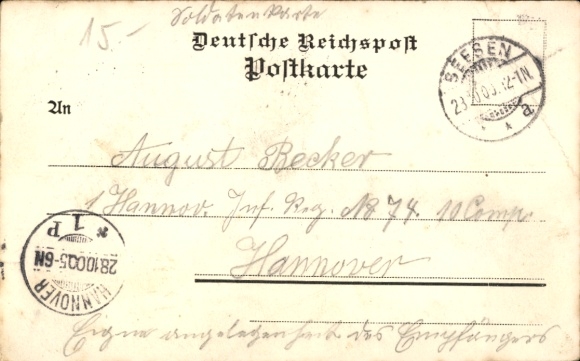 15.-
Soldatenkarte
Deutsche Reichspost
Postkarte
SEESEN
12-1N.
* * a
An
August Becker
1 Hannov. Inf. Reg. No 74. 10 Comp.
Hannover
* 1 P
28.10.00.5-6N
HANNOVER
Eigne angelegenheit des Empfängers